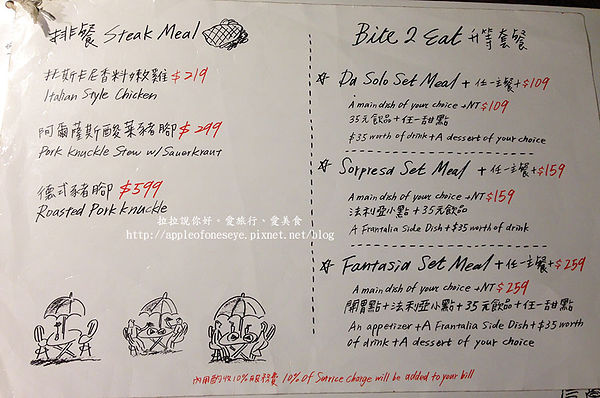 排餐 Steak Meal
斯卡尼香料嫩雞 $219
Italian Style Chicken
阿爾薩斯酸菜豬腳 $299
Pork Knuckle Stew w/ Sauerkraut
德式豬腳 $599
Roasted Pork Knuckle
拉拉說你好。愛旅行、愛美食
http://appleofoneseye.pixnet.net/blog
Bite 2 Eat 升等套餐
☆ Da Solo Set Meal + 任一主餐+$109
A main dish of your choice +NT$109
35元飲品+任一甜點
$35 worth of drink+A dessert of your choice
☆ Sorpresa Set Meal + 任一主餐+$159
A main dish of your choice +NT$159
法利亞小點+35元飲品
A Frantalia Side Dish+$35 worth of drink
☆ Fantasia Set Meal+任一主餐+$259
A main dish of your choice +NT$259
開胃點+法利亞小點+35元飲品+任一甜點
An appetizer+A Frantalia Side Dish+$35 worth
of drink+A dessert of your choice
內用酌收10%服務費 10% of Service charge will be added to your bill